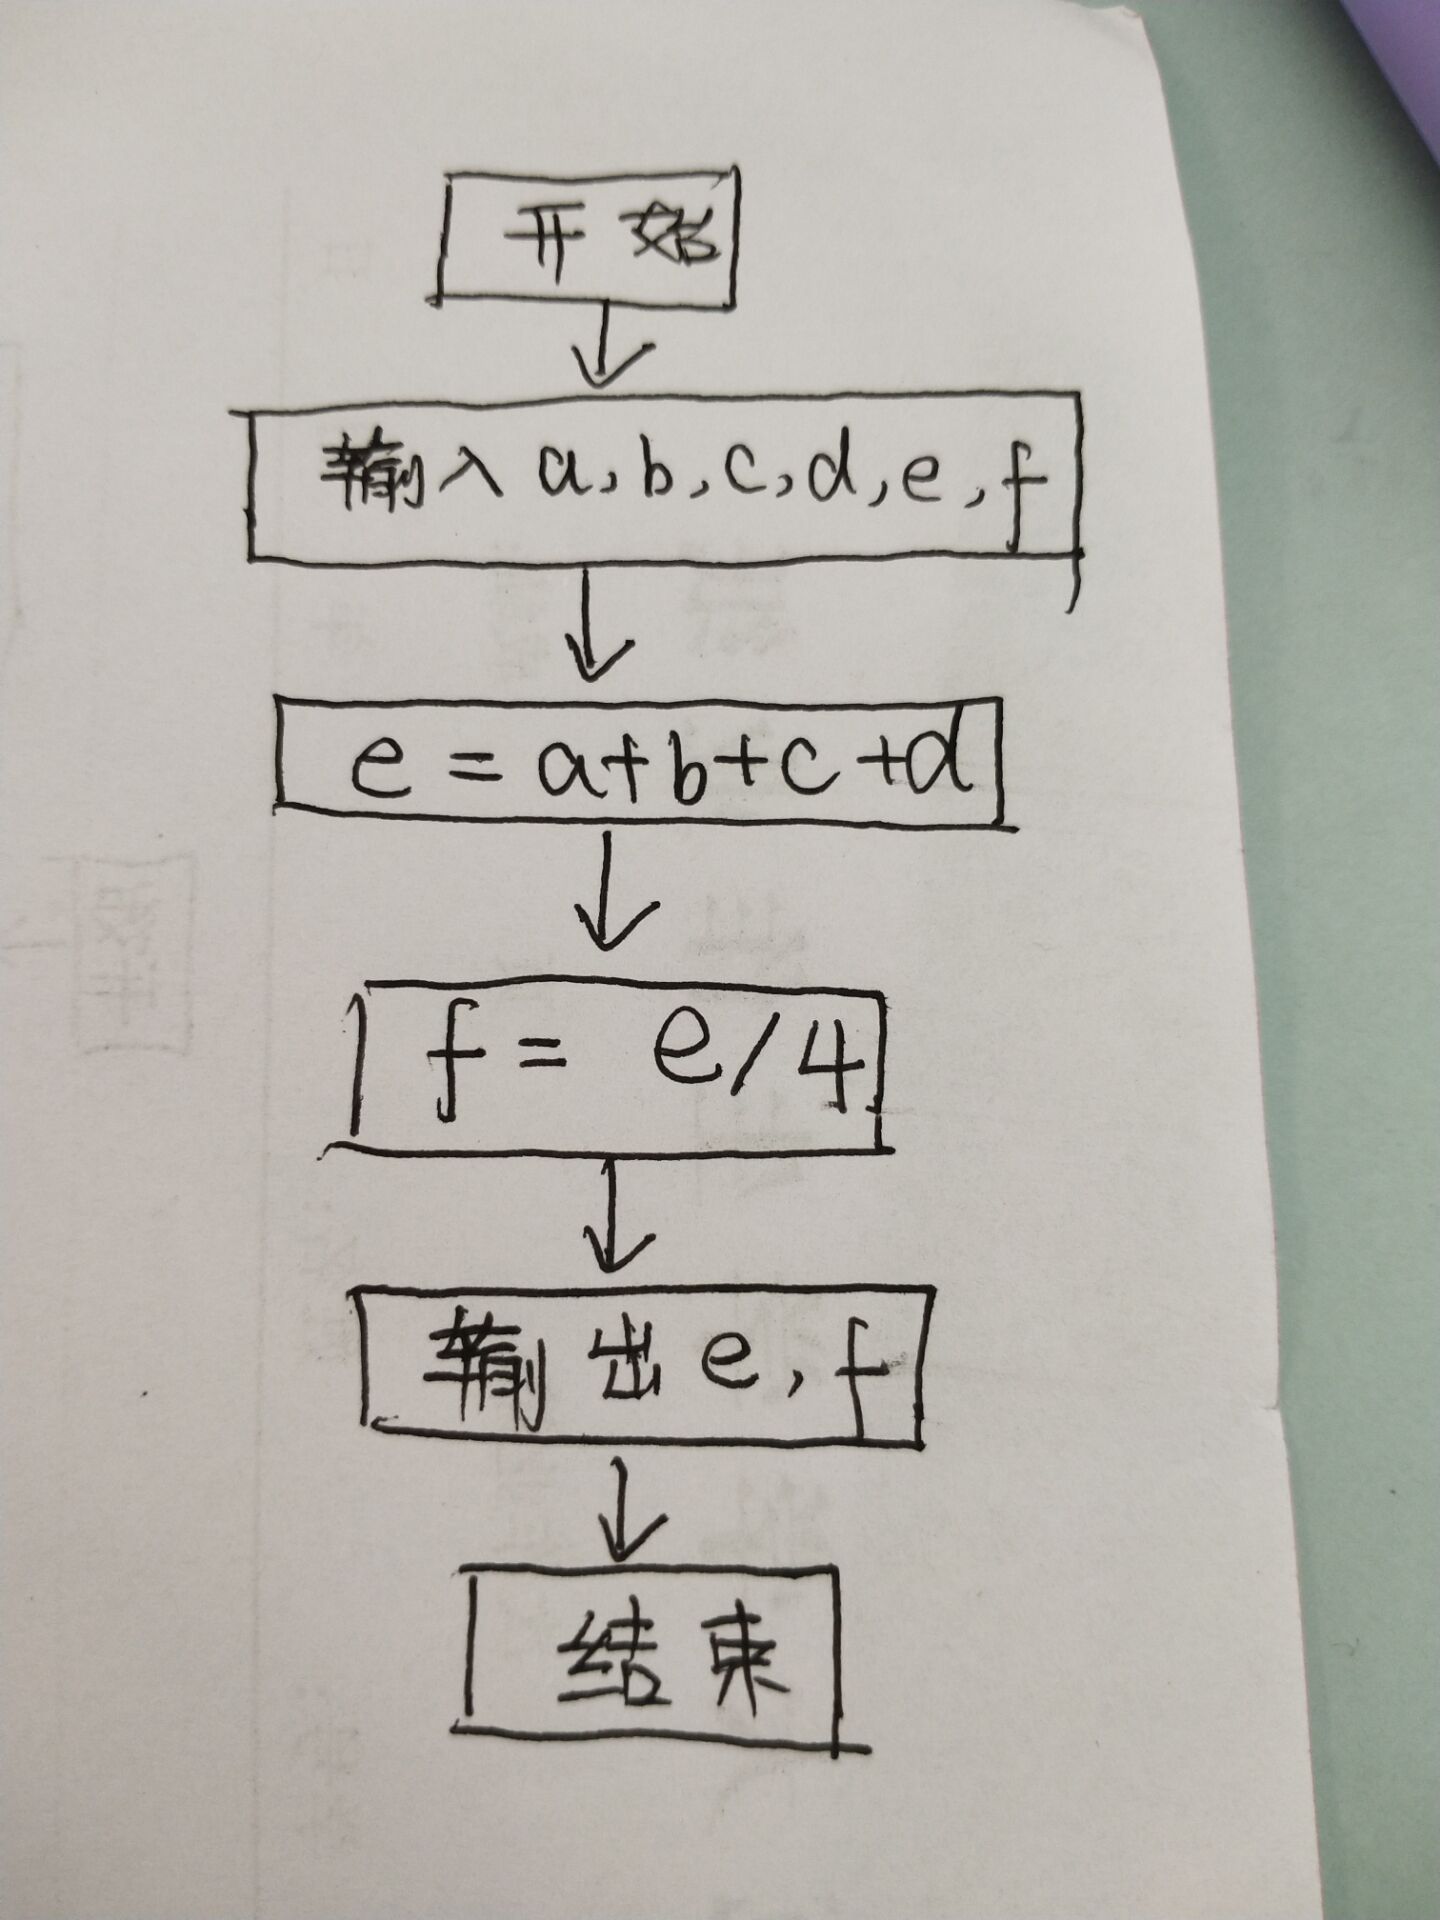 开始
输入 a, b, c, d, e, f
e = a+b+c+d
f = e/4
输出 e, f
结束